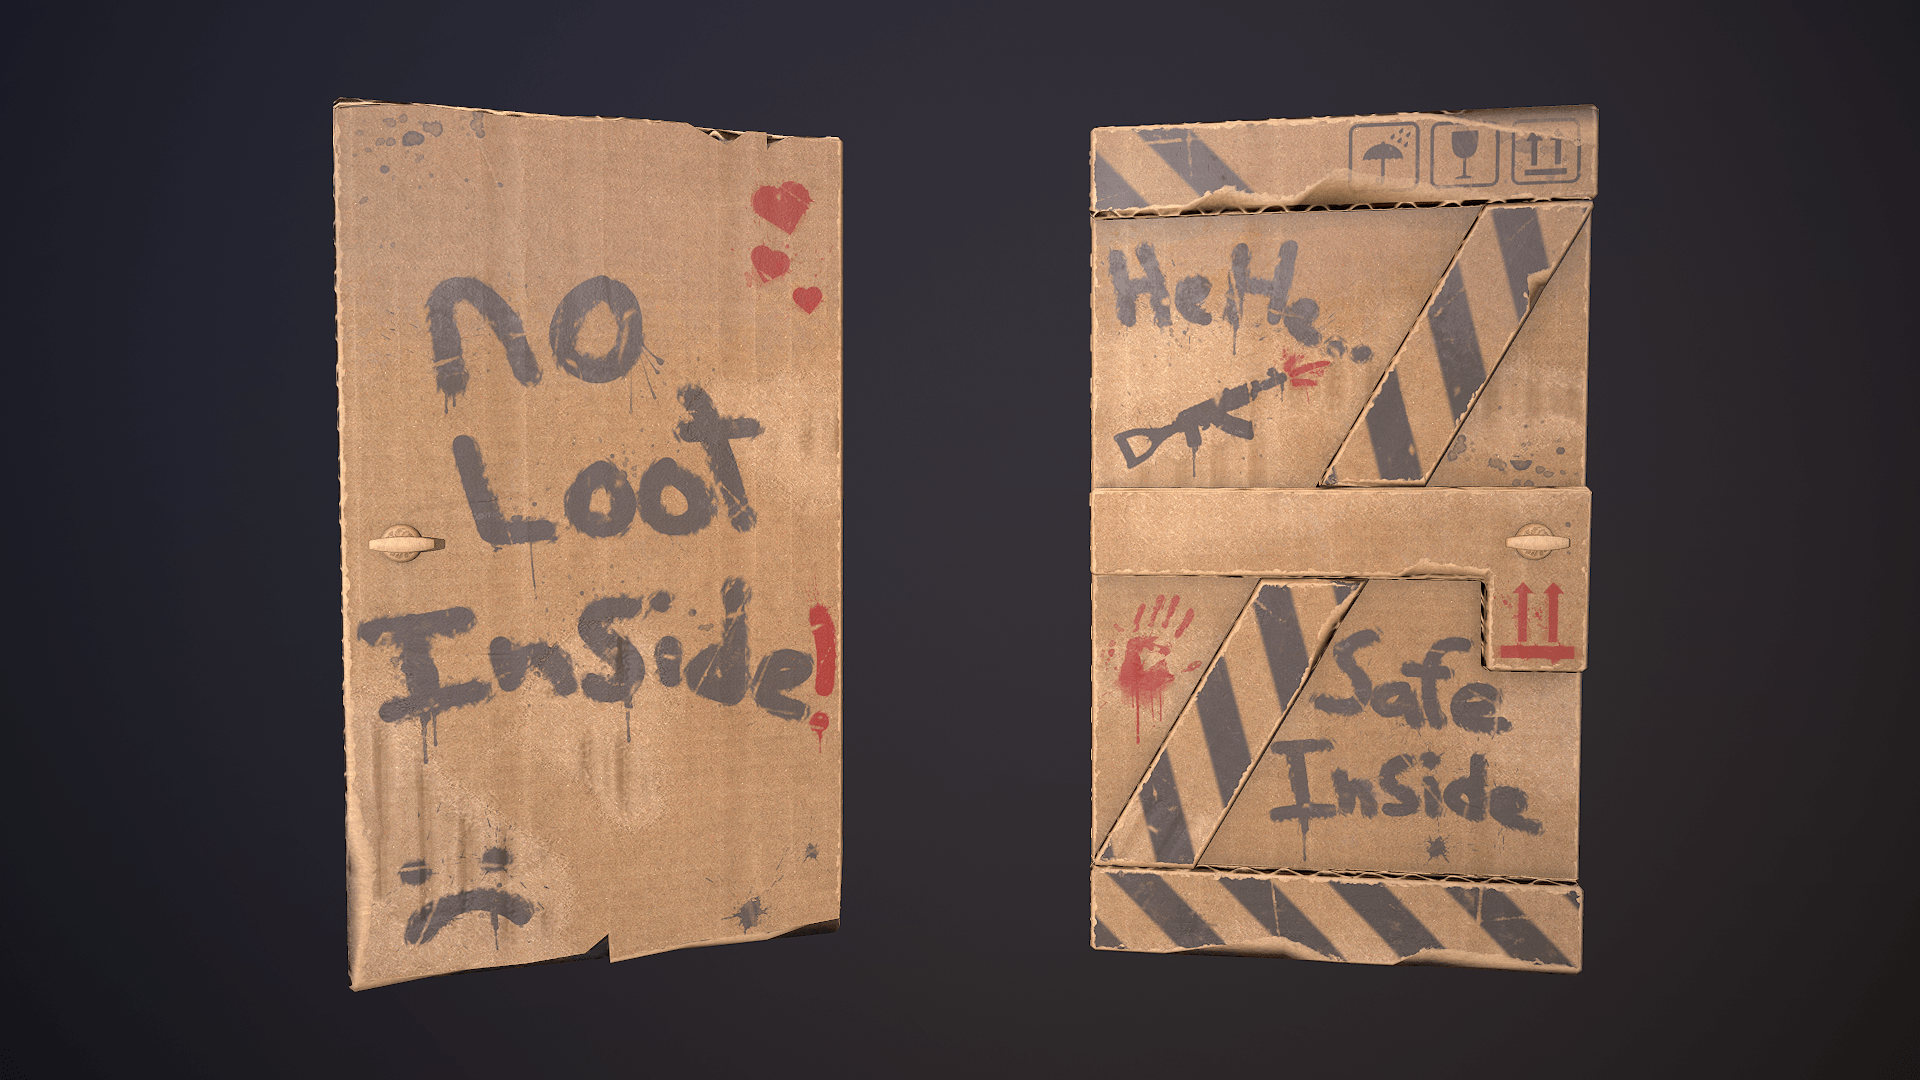 no
Loot
InSide!
HeHe...
Safe
InSide